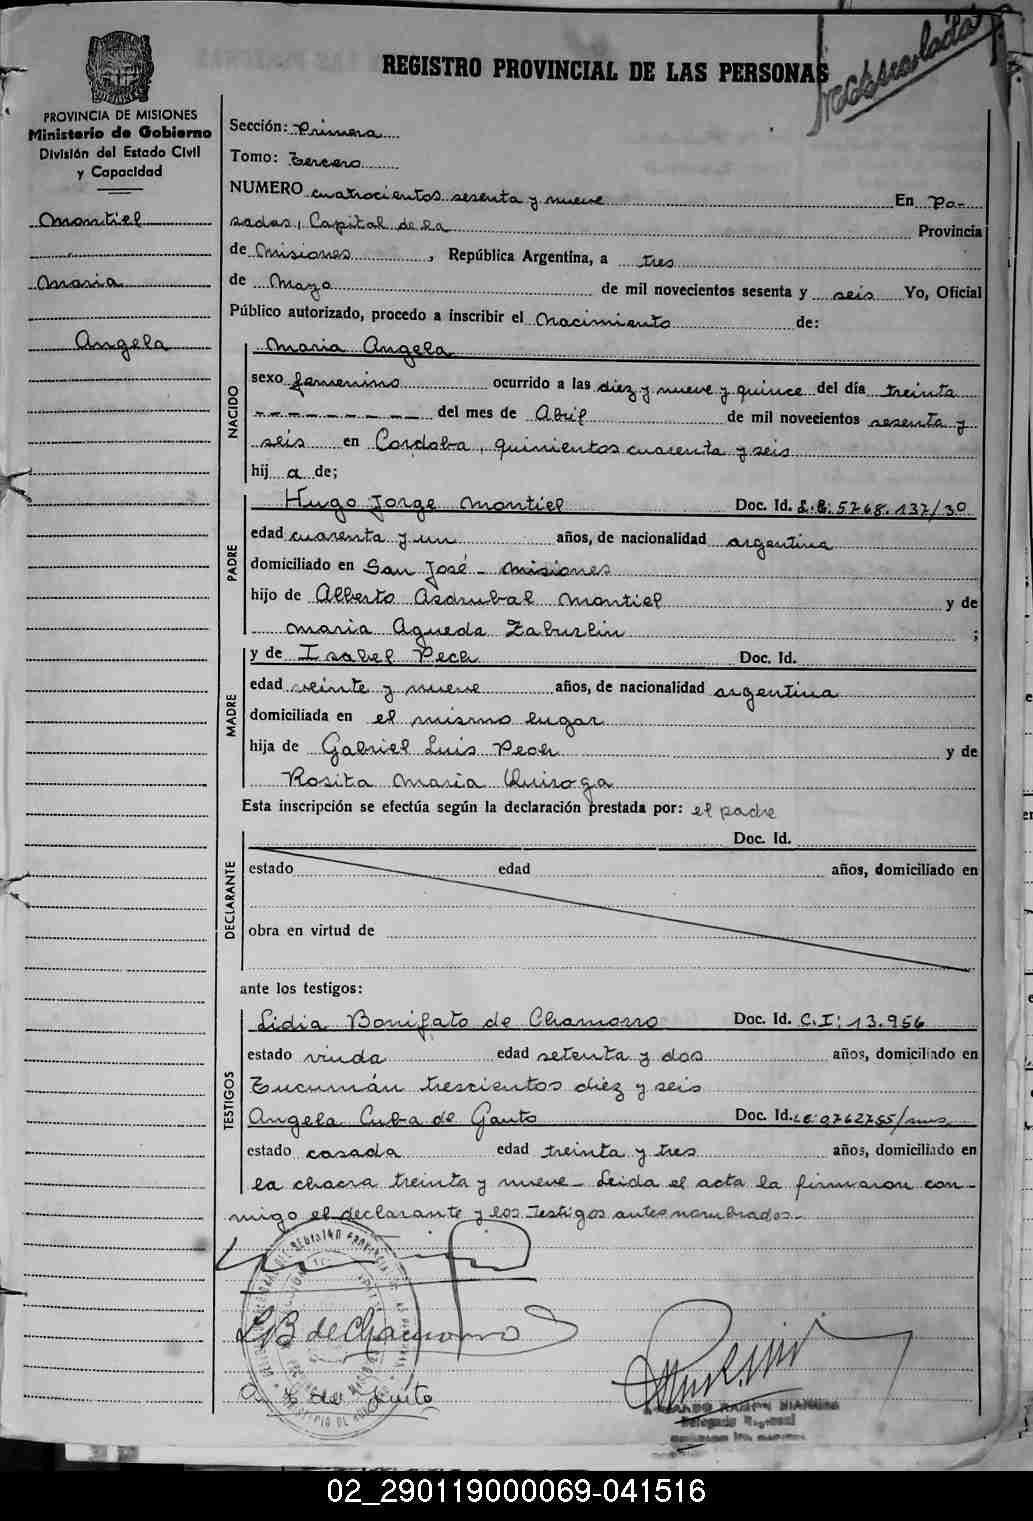 REGISTRO PROVINCIAL DE LAS PERSONAS
PROVINCIA DE MISIONES
Ministerio de Gobierno
División del Estado Civil
y Capacidad
Montiel
Maria
Angela
Sección: Primera
Tomo: Tercero
NUMERO cuatrocientos sesenta y nueve En Po-
sadas, Capital de la Provincia
de Misiones, República Argentina, a tres
de Mayo de mil novecientos sesenta y seis Yo, Oficial
Público autorizado, procedo a inscribir el Nacimiento de:
NACIDO
Maria Angela
sexo femenino ocurrido a las diez y nueve y quince del día treinta
del mes de Abril de mil novecientos sesenta y
seis en Cordoba, quinientos cuarenta y seis
hij a de;
PADRE
Hugo Jorge Montiel Doc. Id. L.E. 5.768.137/30
edad cuarenta y un años, de nacionalidad argentina
domiciliado en San José - Misiones
hijo de Alberto Asdrubal Montiel y de
Maria Agueda Zaburlin ;
MADRE
y de Isabel Pech Doc. Id.
edad veinte y nueve años, de nacionalidad argentina
domiciliada en el mismo lugar
hija de Gabriel Luis Pech y de
Rosita Maria Quiroga
Esta inscripción se efectúa según la declaración prestada por: el padre
DECLARANTE
Doc. Id.
estado edad años, domiciliado en
obra en virtud de
ante los testigos:
TESTIGOS
Lidia Bonifato de Chamorro Doc. Id. C.I: 13.956
estado viuda edad setenta y dos años, domiciliado en
Tucumán trescientos diez y seis
Angela Cuba de Gauto Doc. Id. L.E 0762755/
estado casada edad treinta y tres años, domiciliado en
la chacra treinta y nueve - Leida el acta la firmaron con-
migo el declarante y los Testigos antes nombrados.-
LB de Chamorro
Delegado Regional
02_290119000069-041516